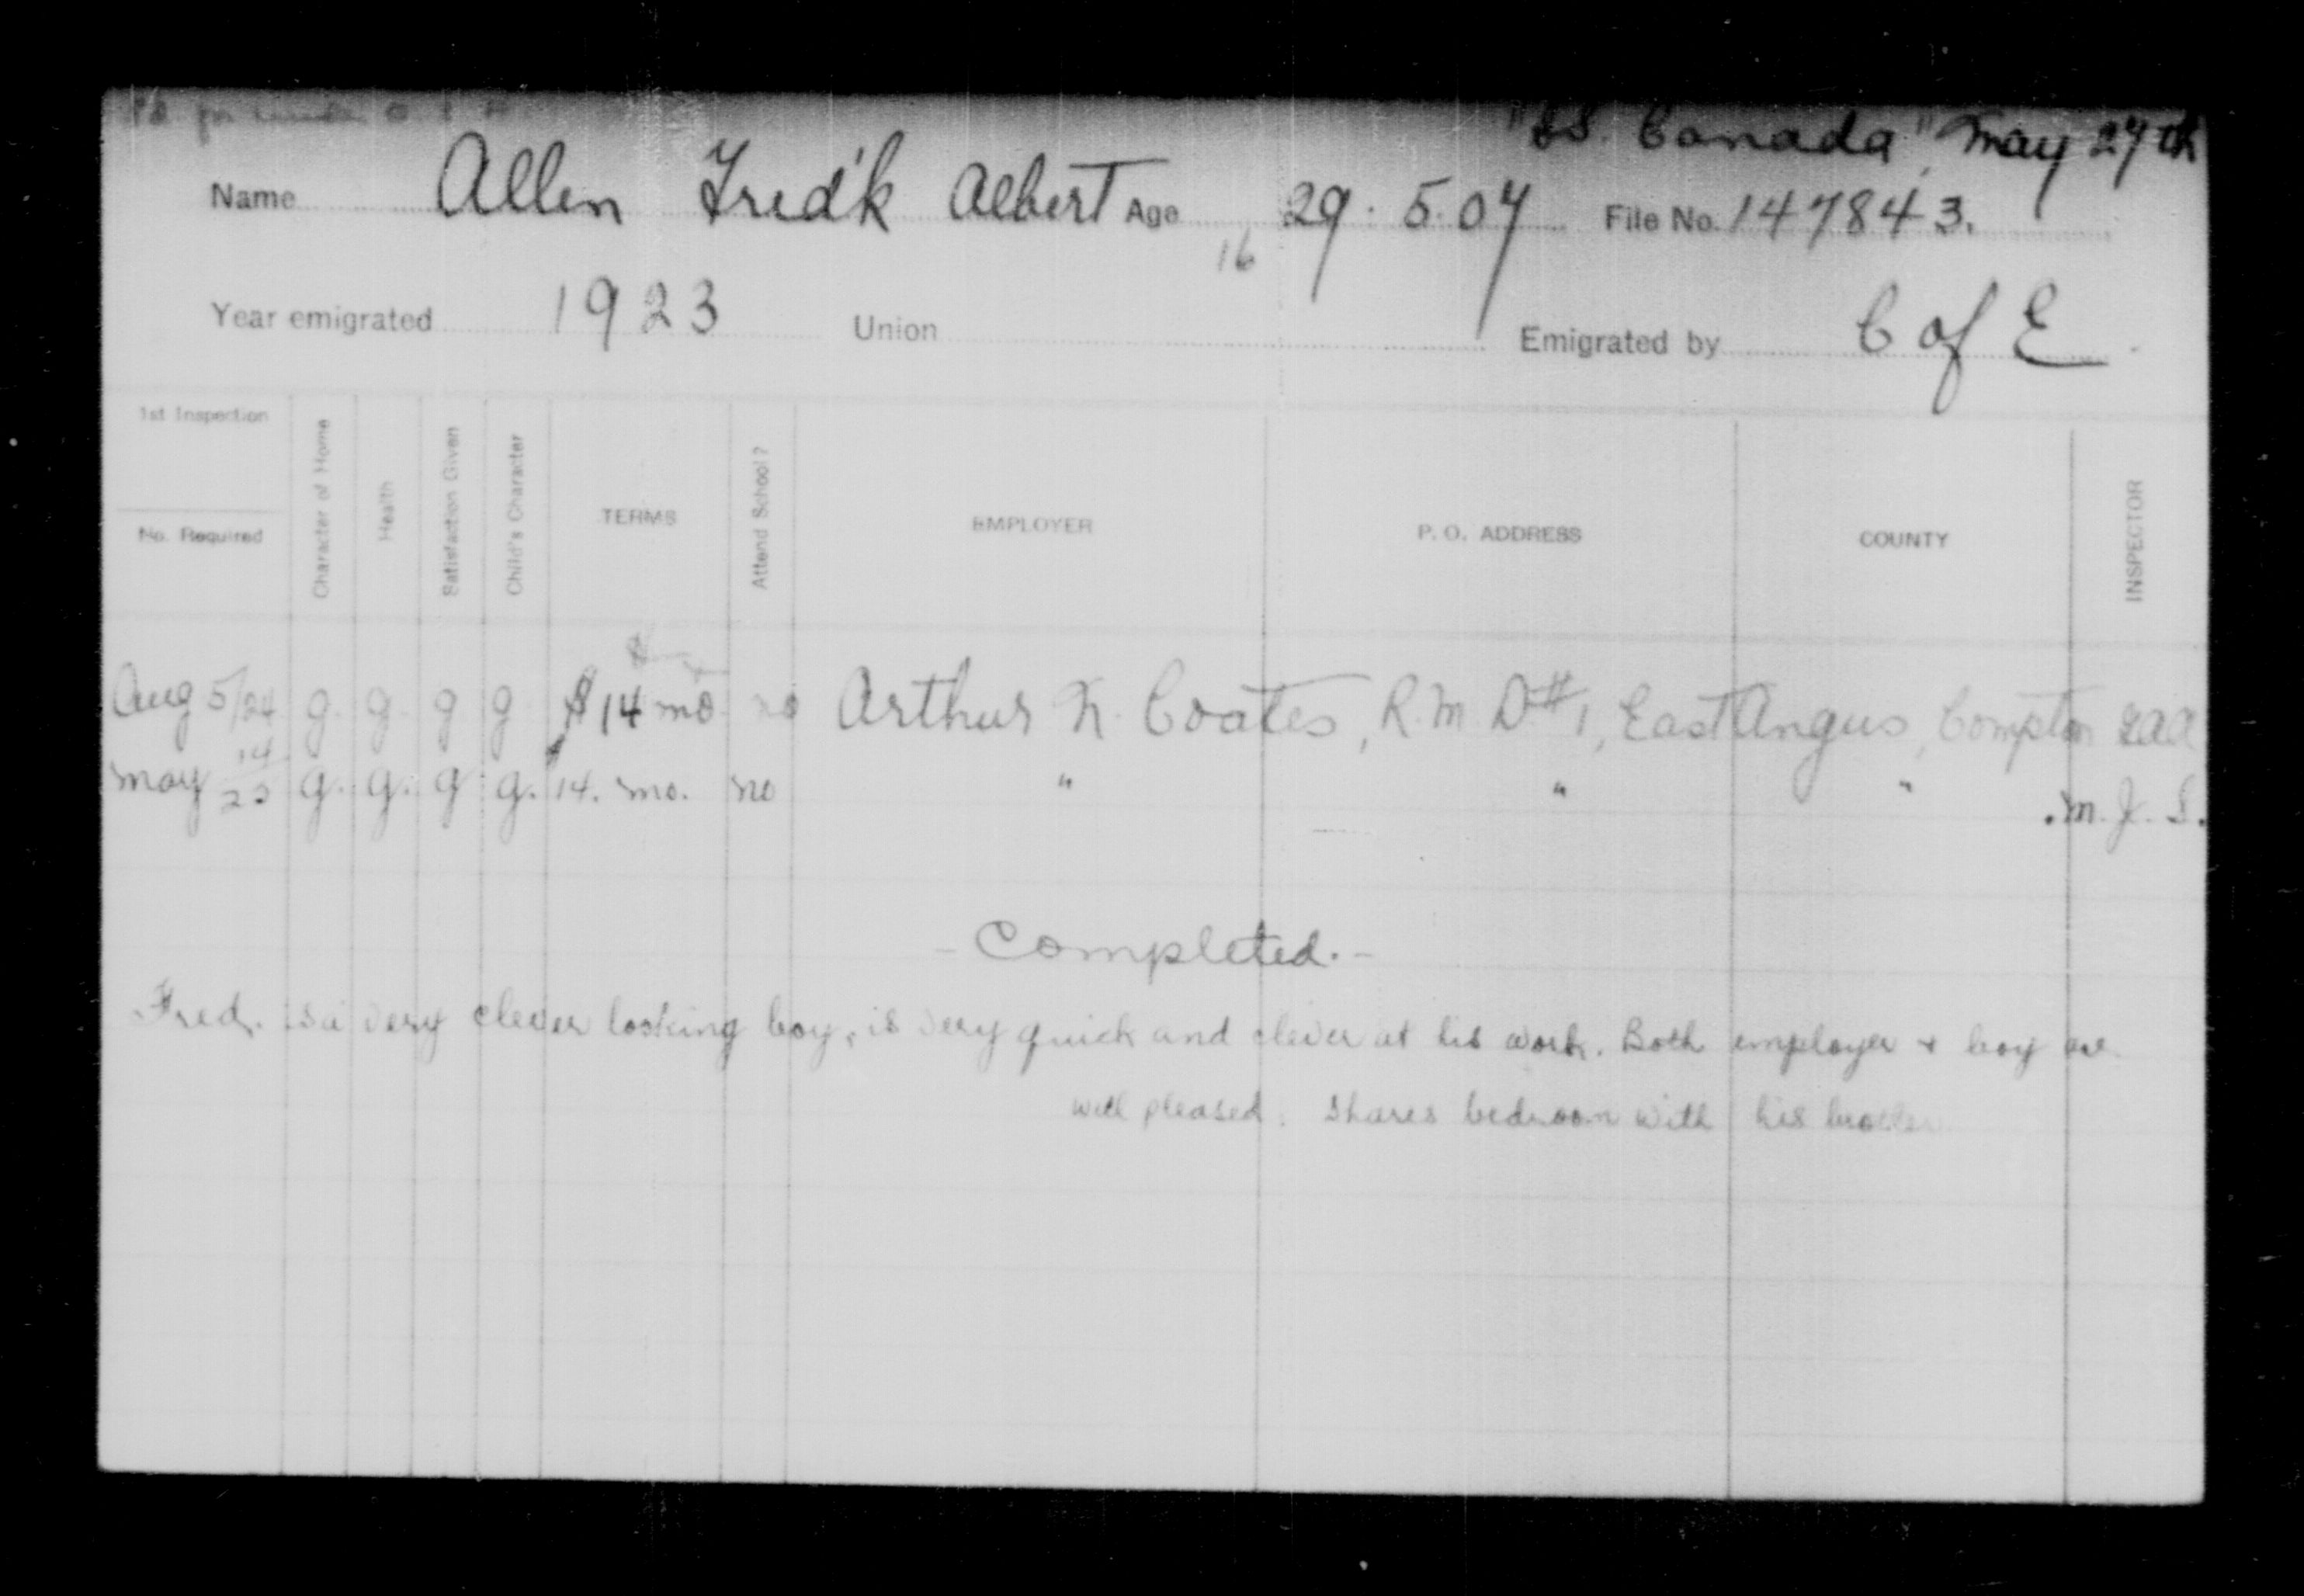 "SS. Canada", May 27th
Name Allen Fred'k Albert Age 29. 5. 07 File No. 147843.
16
Year emigrated 1923 Union Emigrated by C of E
1st Inspection
No. Required
Character of Home
Health
Satisfaction Given
Child's Character
TERMS
Attend School?
EMPLOYER
P. O. ADDRESS
COUNTY
INSPECTOR
Aug 5/24 g. g. g g $14 mo. no Arthur N. Coates, R.M.D #1, East Angus, Compton
May 14 25 g. g. g g. 14. mo. no " " " M. J. S.
- Completed. -
Fred. is a very clever looking boy, is very quick and clever at his work. Both employer + boy are
well pleased. Shares bedroom with his brother